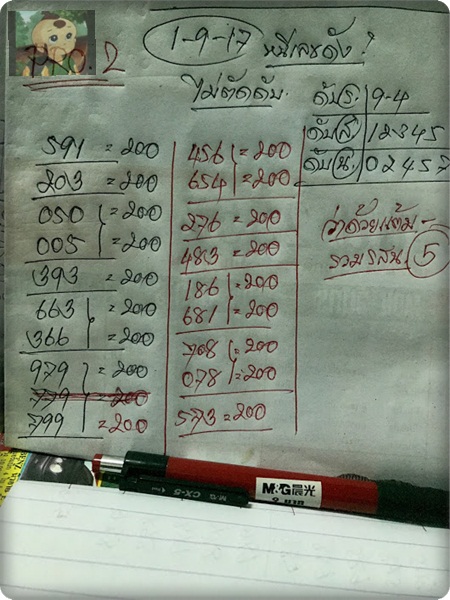 1-9-17 หนีเลขดัง!
ไม่ตัดดับ.
ดับ(ร). 9-4
ดับ(ส) 12345
ดับ(น). 02457
591 = 200
203 = 200
050 = 200
005 = 200
393 = 200
663 = 200
366 = 200
979 = 200
779 = 200
799 = 200
456 = 200
654 = 200
276 = 200
483 = 200
186 = 200
681 = 200
708 = 200
078 = 200
573 = 200
ว่าด้วยแต้ม-
รวม 5
M&G CX-5
M&G 晨光